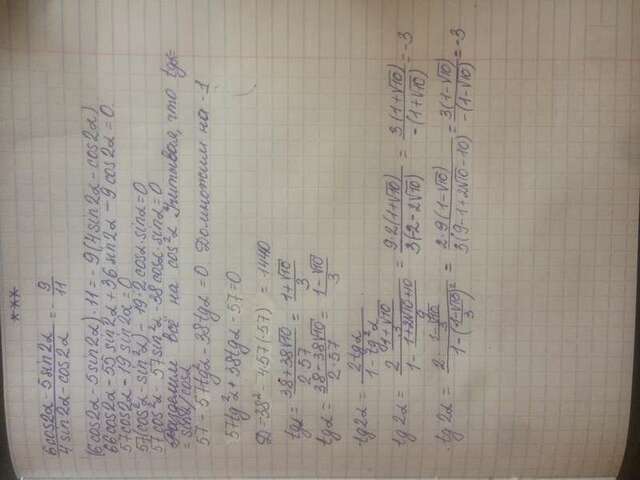 ***
6cos2α - 5sin2α / 4sin2α - cos2α = - 9/11
(6cos2α - 5sin2α)·11 = -9(4sin2α - cos2α)
66cos2α - 55sin2α + 36sin2α - 9cos2α = 0
57cos2α - 19sin2α = 0
57(cos²α - sin²α) - 19·2cosα·sinα = 0
57cos²α - 57sin²α - 38cosα·sinα = 0
Разделим всё на cos²α Учитывая, что tgα =
= sinα/cosα
57 - 57tg²α - 38tgα = 0 Домножим на -1
57tg²α + 38tgα - 57 = 0
D = 38² - 4·57·(-57) = 14440
tgα = 38+38√10 / 2·57 = 1+√10 / 3
tgα = 38-38√10 / 2·57 = 1-√10 / 3
tg2α = 2tgα / 1-tg²α
tg2α = 2·(1+√10)/3 / 1 - (1+2√10+10)/9 = 9·2(1+√10) / 3(-2-2√10) = 3(1+√10) / -(1+√10) = -3
tg2α = 2·(1-√10)/3 / 1-((1-√10)/3)² = 2·9(1-√10) / 3(9-1+2√10-10) = 3(1-√10) / -(1-√10) = -3